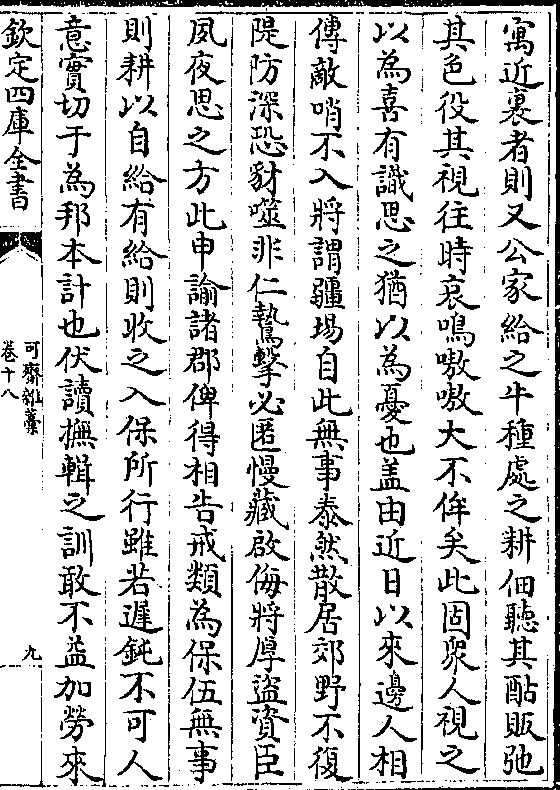 寓近裏者則又公家給之牛種處之耕佃聽其酤販弛
其色役其視往時哀鳴嗷嗷大不侔矣此固衆人視之
以為喜有識思之猶以為憂也盖由近日以來邊人相
傳敵哨不入將謂疆埸自此無事泰然散居郊野不復
隄防深恐豺噬非仁鷙擊必匿慢藏啟侮將厚盜資臣
夙夜思之方此申諭諸郡俾得相告戒類為保伍無事
則耕以自給有給則收之入保所行雖若遲鈍不可人
意實切于為邦本計也伏讀撫輯之訓敢不益加勞來
欽定四庫全書
可齋雜藁
卷十八
九